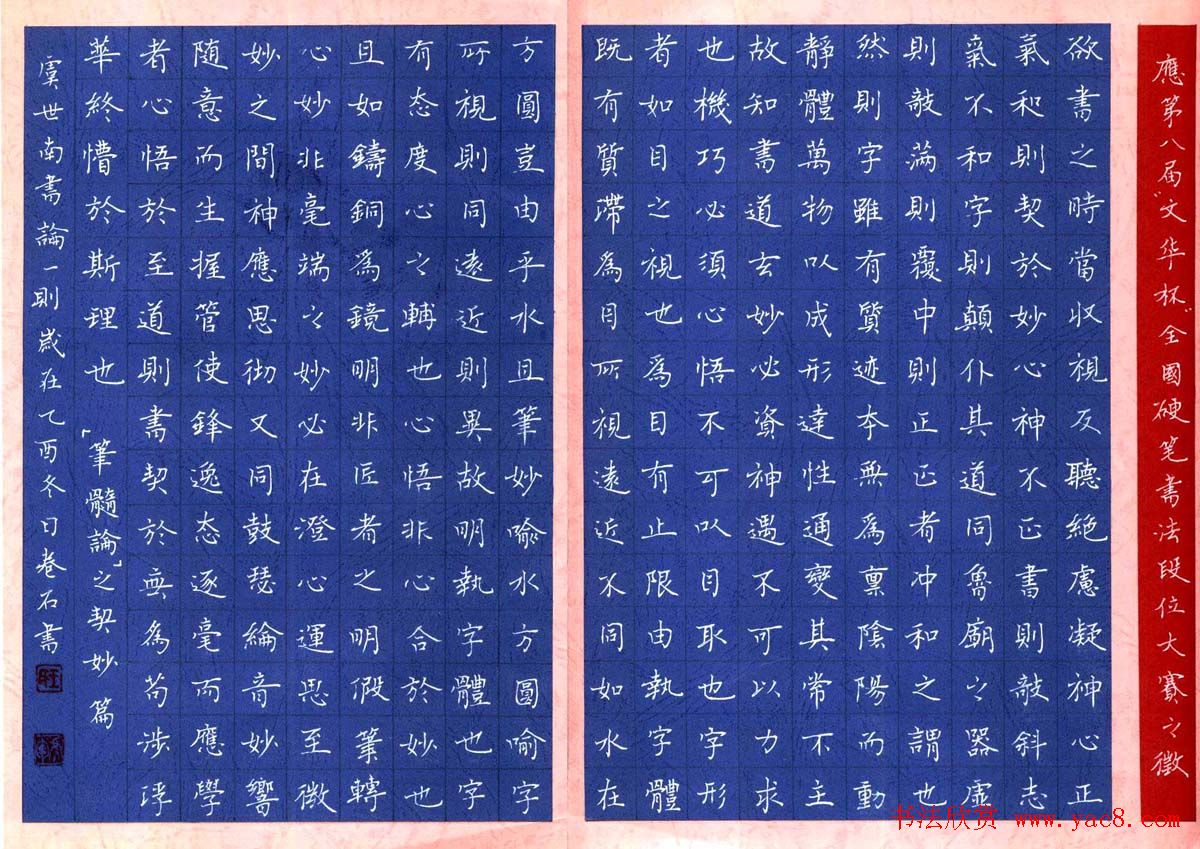 應第八届"文华杯"全國硬笔書法段位大賽之徵
欲書之時當收視反聽絕慮凝神心正
氣和則契於妙心神不正書則敧斜志
氣不和字則顛仆其道同魯廟之器虛
則敧满則覆中則正正者冲和之謂也
然則字雖有質迹本無為禀陰陽而動
靜體萬物以成形達性通變其常不主
故知書道玄妙必資神遇不可以力求
也機巧必須心悟不可以目取也字形
者如目之視也為目有止限由執字體
既有質滯為目所視遠近不同如水在
方圓豈由乎水且筆妙喻水方圓喻字
所視則同遠近則異故明執字體也字
有态度心之輔也心悟非心合於妙也
且如鑄銅為鏡明非匠者之明假筆轉
心妙非毫端之妙必在澄心運思至微
妙之間神應思彻又同鼓瑟綸音妙響
随意而生握管使鋒逸态逐毫而應學
者心悟於至道則書契於無為苟涉浮
華終懵於斯理也 「筆髓論」之契妙篇
虞世南書論一則歲在乙酉冬日卷石書
书法欣赏 www.yac8.com